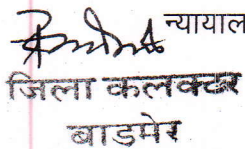 न्यायाल
जिला कलक्टर
बाडमेर